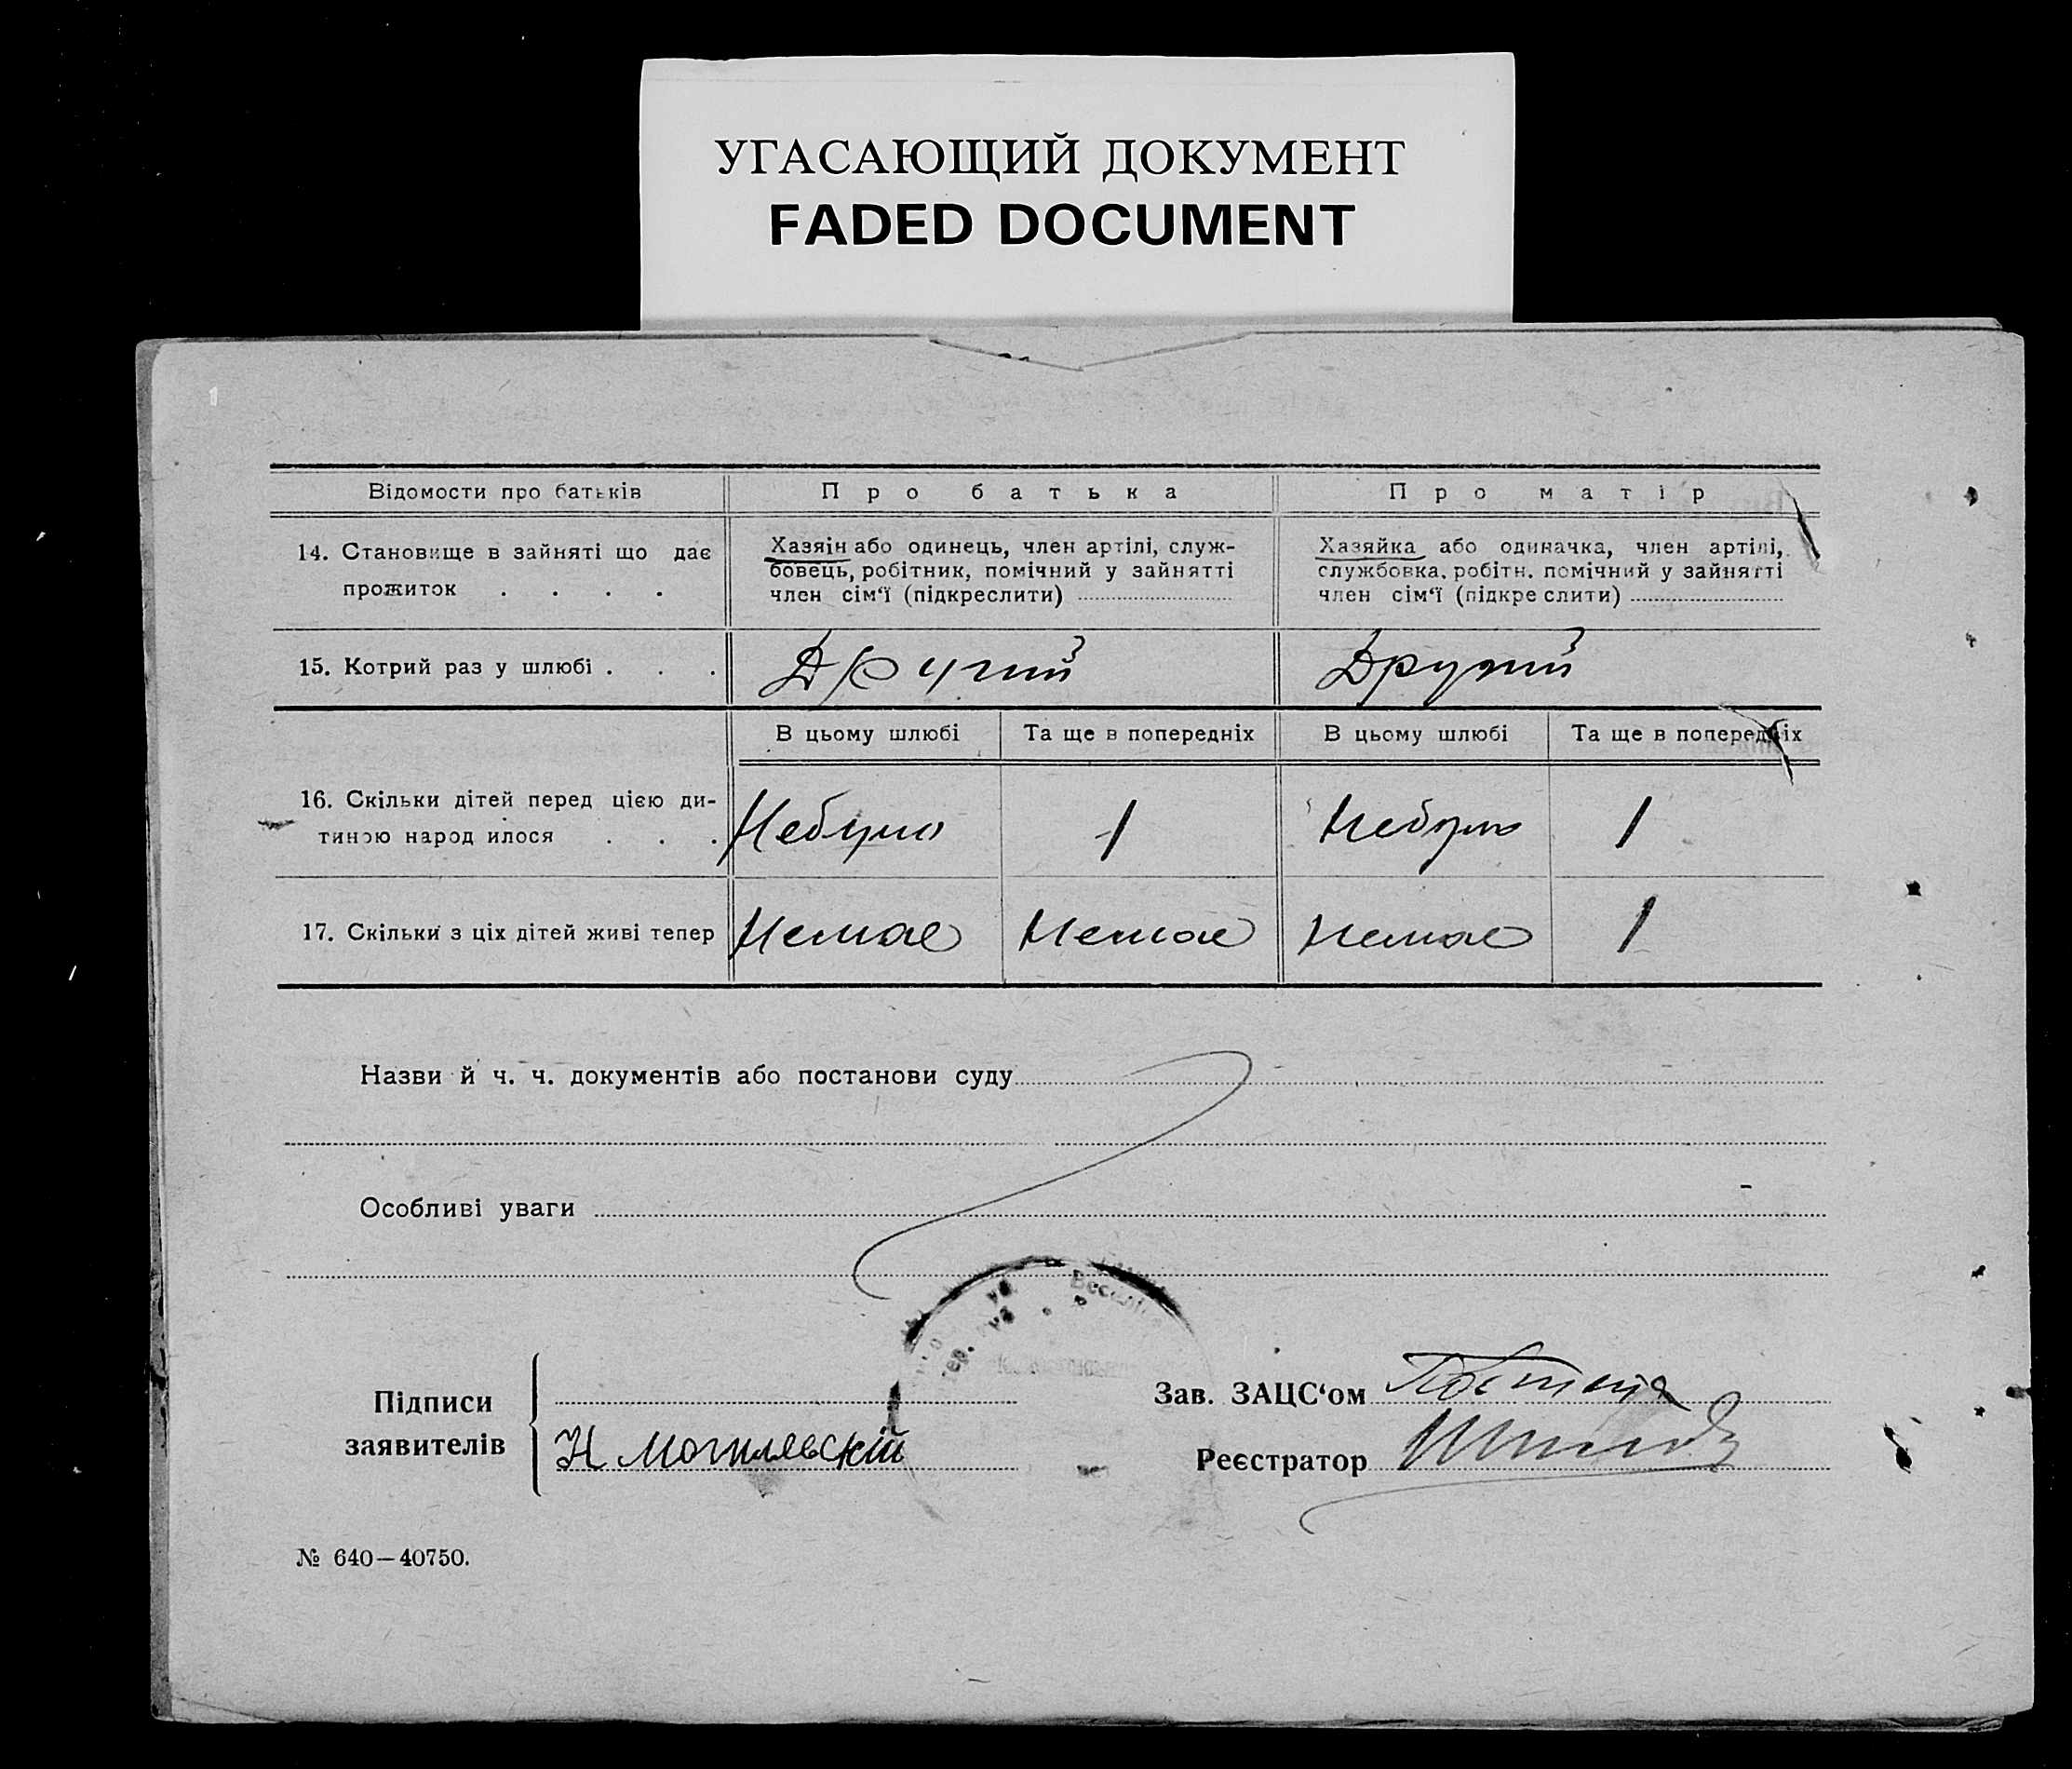 УГАСАЮЩИЙ ДОКУМЕНТ
FADED DOCUMENT
Відомости про батьків
Про батька
Про матір
14. Становище в зайняті що дає
прожиток . . . .
Хазяін або одинець, член артілі, служ-
бовець, робітник, помічний у зайнятті
член сім‘ї (підкреслити)
Хазяйка або одиначка, член артілі,
службовка, робітн. помічний у зайнятті
член сім‘ї (підкреслити)
15. Котрий раз у шлюбі . . .
Другий
Другий
В цьому шлюбі
Та ще в попередніх
В цьому шлюбі
Та ще в попередніх
16. Скільки дітей перед цією ди-
тиною народилося . . .
Небуло
1
Небуло
1
17. Скільки з ціх дітей живі тепер
Немає
Немає
Немає
1
Назви й ч. ч. документів або постанови суду
Особливі уваги
Підписи
заявителів
Н Могилевскій
Зав. ЗАЦС‘ом
Реєстратор
№ 640—40750.